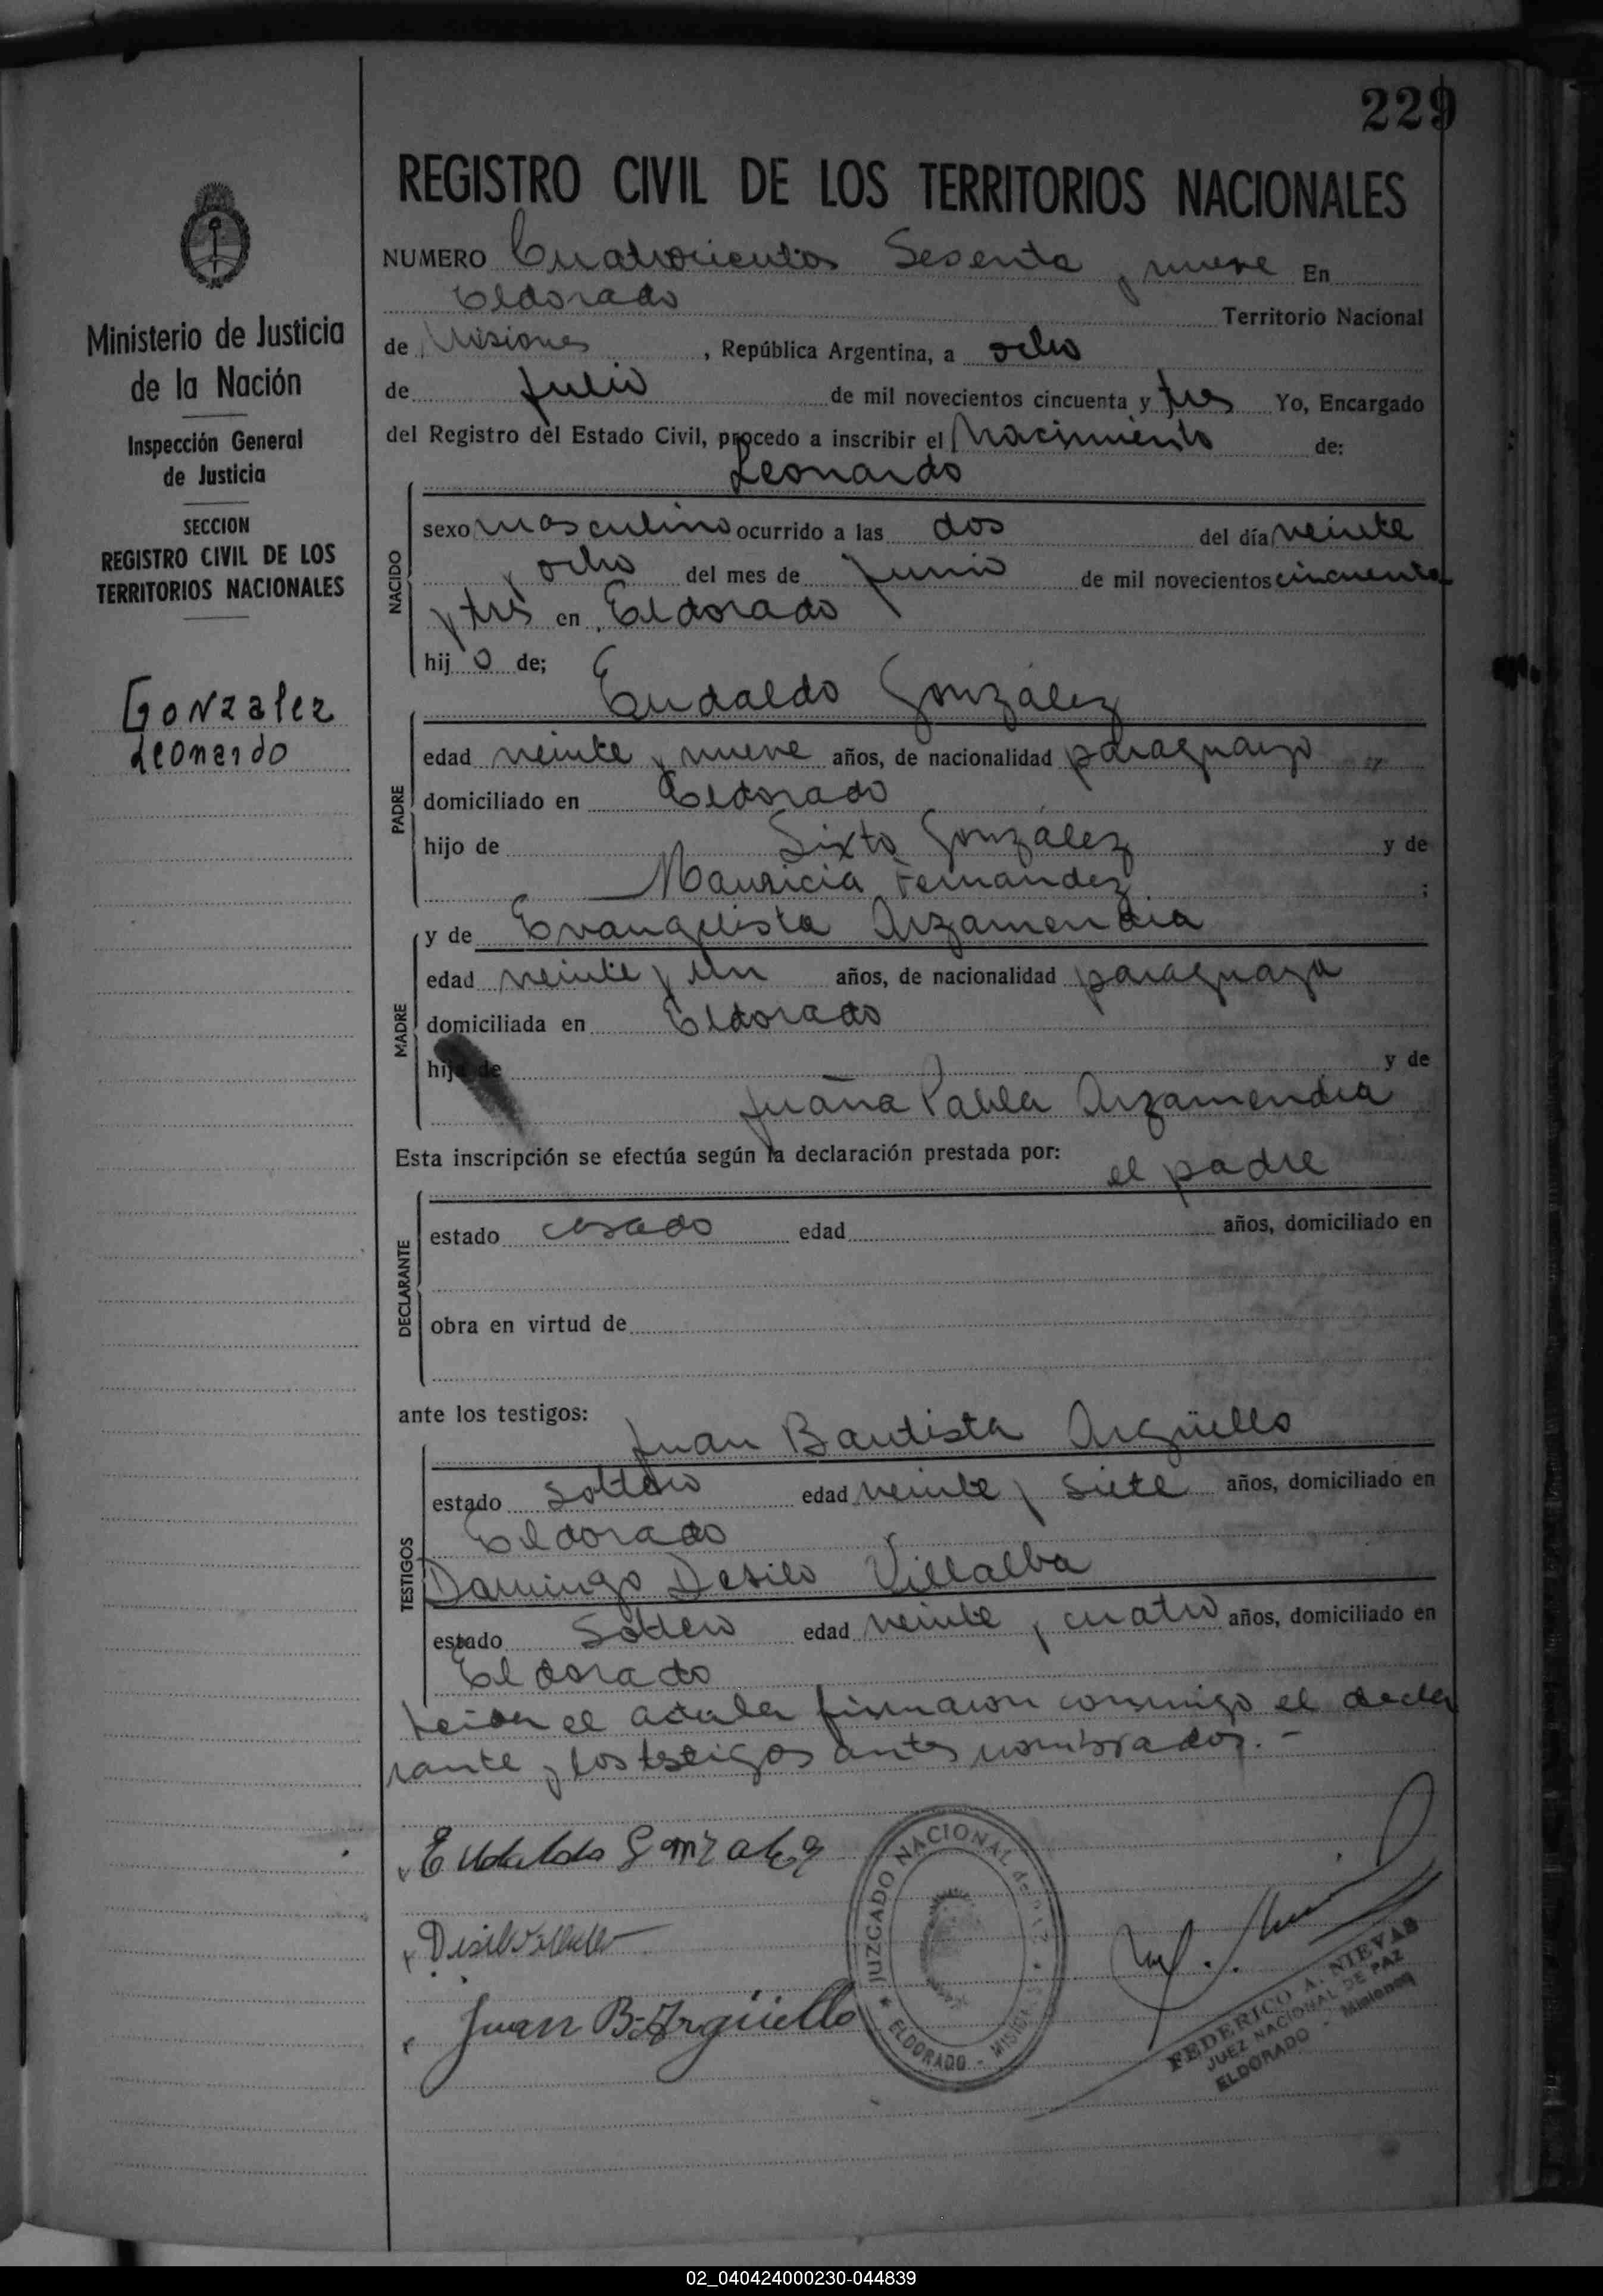 229
REGISTRO CIVIL DE LOS TERRITORIOS NACIONALES
Ministerio de Justicia
de la Nación
Inspección General
de Justicia
SECCION
REGISTRO CIVIL DE LOS
TERRITORIOS NACIONALES
Gonzalez
Leonardo
NUMERO Cuatrocientos Sesenta y nueve En
Eldorado Territorio Nacional
de Misiones, República Argentina, a ocho
de Julio de mil novecientos cincuenta y tres Yo, Encargado
del Registro del Estado Civil, procedo a inscribir el Nacimiento de:
Leonardo
NACIDO
sexo masculino ocurrido a las dos del día veinte
y ocho del mes de Junio de mil novecientos cincuenta
y tres en Eldorado
hijo de;
Eudaldo González
PADRE
edad veinte y nueve años, de nacionalidad paraguayo
domiciliado en Eldorado
hijo de Sixto González y de
Mauricia Fernandez;
MADRE
y de Evangelista Arzamendia
edad veinte y un años, de nacionalidad paraguaya
domiciliada en Eldorado
hija de y de
Juana Pabla Arzamendia
Esta inscripción se efectúa según la declaración prestada por:
el padre
DECLARANTE
estado casado edad años, domiciliado en
obra en virtud de
ante los testigos:
Juan Bautista Argüello
TESTIGOS
estado soltero edad veinte y siete años, domiciliado en
Eldorado
Domingo Villalba
estado Soltero edad veinte y cuatro años, domiciliado en
Eldorado
Leida el acta la firmaron conmigo el decla
rante y los testigos antes nombrados.-
Eudaldo Gonzalez
Juan B. Argüello
JUZGADO NACIONAL de PAZ
ELDORADO - MISIONES
FEDERICO A. NIEVAS
JUEZ NACIONAL DE PAZ
ELDORADO - Misiones
02_040424000230-044839